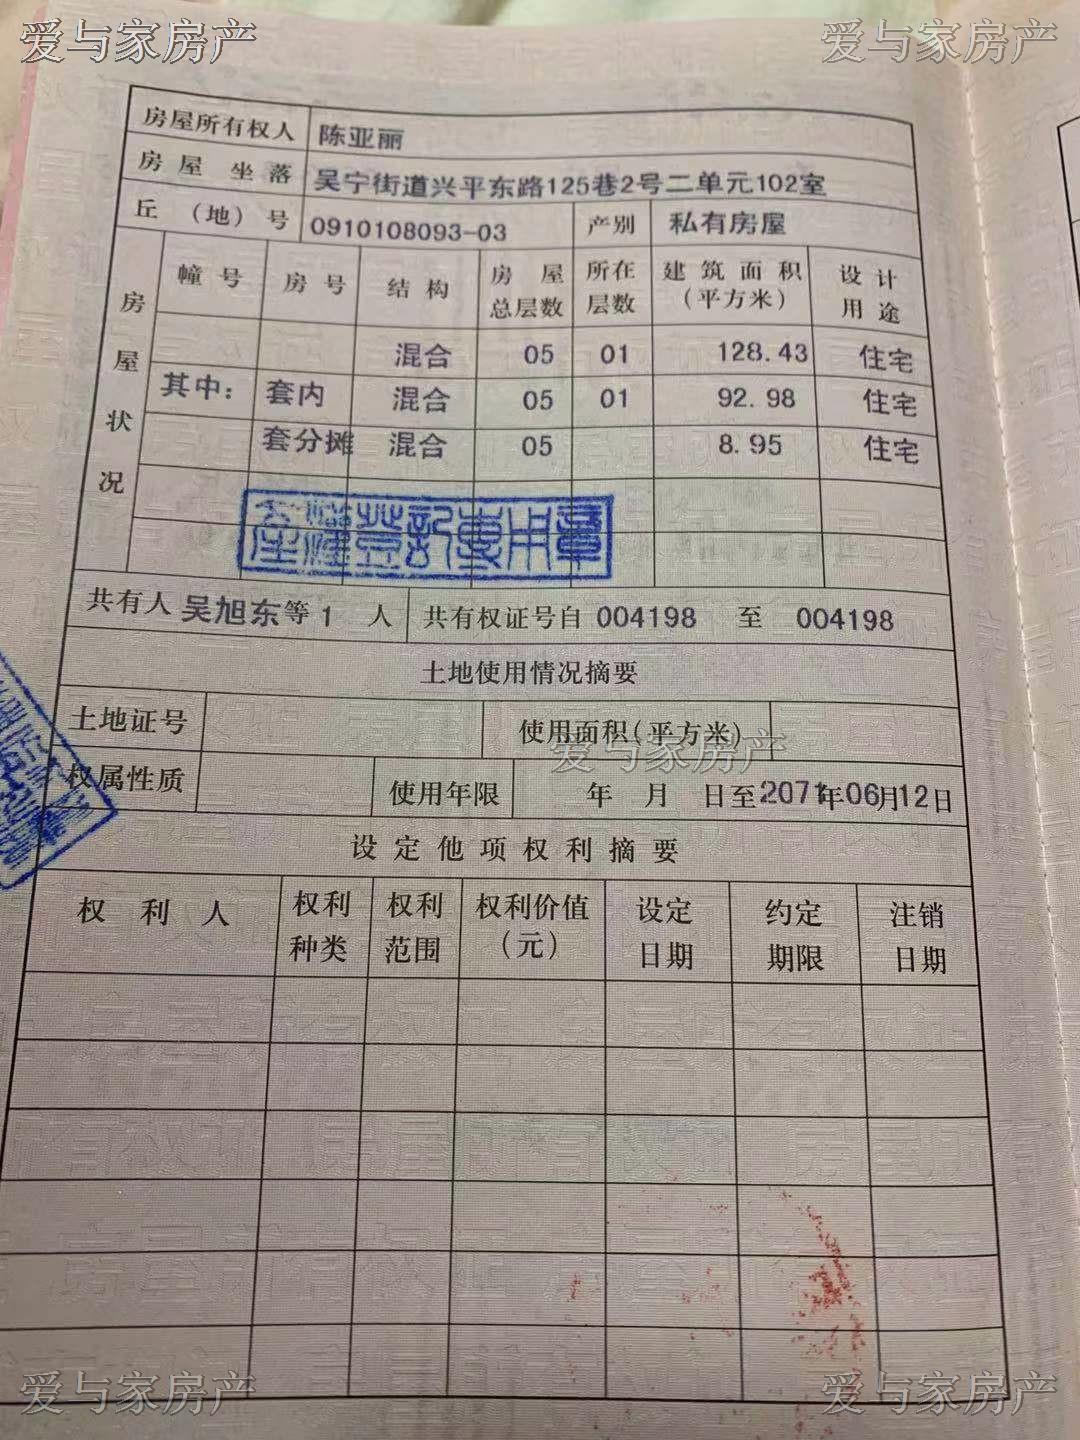 爱与家房产 爱与家房产
房屋所有权人 陈亚丽
房屋坐落 吴宁街道兴平东路125巷2号二单元102室
丘（地）号 0910108093-03 产别 私有房屋
房屋状况 幢号 房号 结构 房屋总层数 所在层数 建筑面积（平方米） 设计用途
混合 05 01 128.43 住宅
其中: 套内 混合 05 01 92.98 住宅
套分摊 混合 05 8.95 住宅
产权登记专用章
共有人 吴旭东等1人 共有权证号自 004198 至 004198
土地使用情况摘要
土地证号 使用面积(平方米)
爱与家房产
权属性质 使用年限 年 月 日至2071年06月12日
设定他项权利摘要
权利人 权利种类 权利范围 权利价值（元） 设定日期 约定期限 注销日期
爱与家房产 爱与家房产